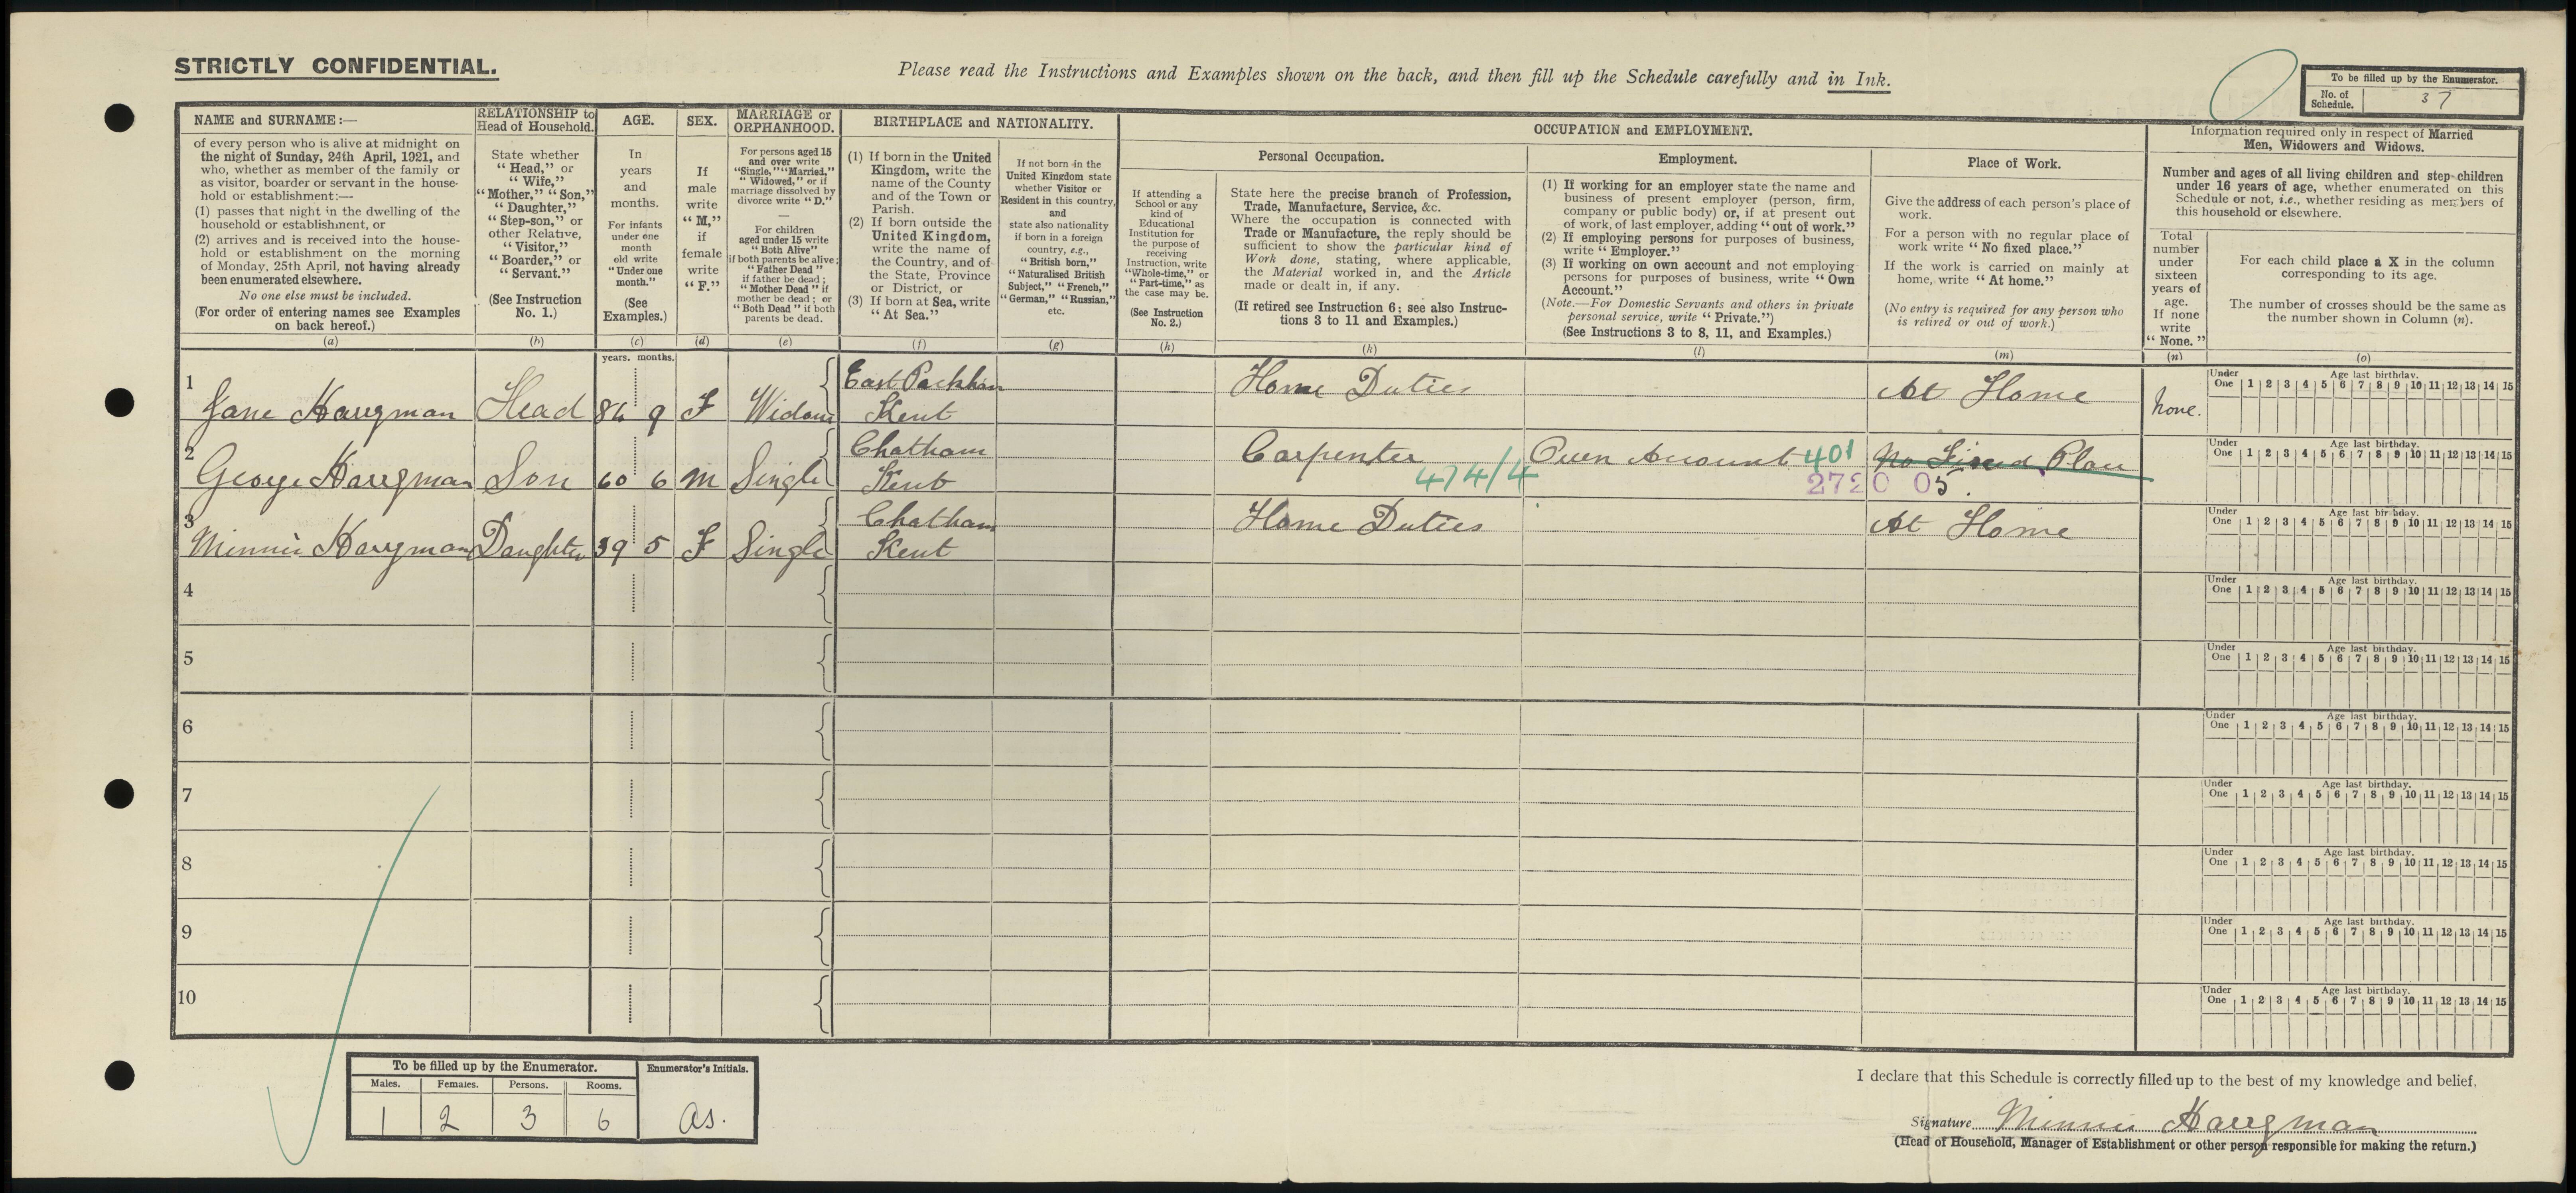 STRICTLY CONFIDENTIAL.
Please read the Instructions and Examples shown on the back, and then fill up the Schedule carefully and in Ink.
To be filled up by the Enumerator.
No. of Schedule. 37
NAME and SURNAME:—
of every person who is alive at midnight on
the night of Sunday, 24th April, 1921, and
who, whether as member of the family or
as visitor, boarder or servant in the house-
hold or establishment:—
(1) passes that night in the dwelling of the
household or establishment, or
(2) arrives and is received into the house-
hold or establishment on the morning
of Monday, 25th April, not having already
been enumerated elsewhere.
No one else must be included.
(For order of entering names see Examples
on back hereof.)
(a)
RELATIONSHIP to
Head of Household.
State whether
"Head," or
"Wife,"
"Mother," "Son,"
"Daughter,"
"Step-son," or
other Relative,
"Visitor,"
"Boarder," or
"Servant."
(See Instruction
No. 1.)
(b)
AGE.
In
years
and
months.
For infants
under one
month
old write
"Under one
month."
(See
Examples.)
(c)
years. months.
SEX.
If
male
write
"M,"
if
female
write
"F."
(d)
MARRIAGE or
ORPHANHOOD.
For persons aged 15
and over write
"Single," "Married,"
"Widowed," or if
marriage dissolved by
divorce write "D."
—
For children
aged under 15 write
"Both Alive"
if both parents be alive;
"Father Dead"
if father be dead;
"Mother Dead" if
mother be dead; or
"Both Dead" if both
parents be dead.
(e)
BIRTHPLACE and NATIONALITY.
(1) If born in the United
Kingdom, write the
name of the County
and of the Town or
Parish.
(2) If born outside the
United Kingdom,
write the name of
the Country, and of
the State, Province
or District, or
(3) If born at Sea, write
"At Sea."
(f)
If not born in the
United Kingdom state
whether Visitor or
Resident in this country,
and
state also nationality
if born in a foreign
country, e.g.,
"British born,"
"Naturalised British
Subject," "French,"
"German," "Russian,"
etc.
(g)
OCCUPATION and EMPLOYMENT.
Personal Occupation.
If attending a
School or any
kind of
Educational
Institution for
the purpose of
receiving
Instruction, write
"Whole-time," or
"Part-time," as
the case may be.
(See Instruction
No. 2.)
(h)
State here the precise branch of Profession,
Trade, Manufacture, Service, &c.
Where the occupation is connected with
Trade or Manufacture, the reply should be
sufficient to show the particular kind of
Work done, stating, where applicable,
the Material worked in, and the Article
made or dealt in, if any.
(If retired see Instruction 6; see also Instruc-
tions 3 to 11 and Examples.)
(k)
Employment.
(1) If working for an employer state the name and
business of present employer (person, firm,
company or public body) or, if at present out
of work, of last employer, adding "out of work."
(2) If employing persons for purposes of business,
write "Employer."
(3) If working on own account and not employing
persons for purposes of business, write "Own
Account."
(Note.—For Domestic Servants and others in private
personal service, write "Private.")
(See Instructions 3 to 8, 11, and Examples.)
(l)
Place of Work.
Give the address of each person's place of
work.
For a person with no regular place of
work write "No fixed place."
If the work is carried on mainly at
home, write "At home."
(No entry is required for any person who
is retired or out of work.)
(m)
Information required only in respect of Married
Men, Widowers and Widows.
Number and ages of all living children and step-children
under 16 years of age, whether enumerated on this
Schedule or not, i.e., whether residing as members of
this household or elsewhere.
Total
number
under
sixteen
years of
age.
If none
write
"None."
(n)
For each child place a X in the column
corresponding to its age.
The number of crosses should be the same as
the number shown in Column (n).
(o)
1 Jane Head 84 9 F Widow East Peckham Kent Home Duties At Home None.
Under One Age last birthday. 1 2 3 4 5 6 7 8 9 10 11 12 13 14 15
2 George Son 60 6 M Single Chatham Kent Carpenter 474/4 Own Account 401 No Fixed Place
2720 05
Under One Age last birthday. 1 2 3 4 5 6 7 8 9 10 11 12 13 14 15
3 Minnie Daughter 39 5 F Single Chatham Kent Home Duties At Home
Under One Age last birthday. 1 2 3 4 5 6 7 8 9 10 11 12 13 14 15
4
Under One Age last birthday. 1 2 3 4 5 6 7 8 9 10 11 12 13 14 15
5
Under One Age last birthday. 1 2 3 4 5 6 7 8 9 10 11 12 13 14 15
6
Under One Age last birthday. 1 2 3 4 5 6 7 8 9 10 11 12 13 14 15
7
Under One Age last birthday. 1 2 3 4 5 6 7 8 9 10 11 12 13 14 15
8
Under One Age last birthday. 1 2 3 4 5 6 7 8 9 10 11 12 13 14 15
9
Under One Age last birthday. 1 2 3 4 5 6 7 8 9 10 11 12 13 14 15
10
Under One Age last birthday. 1 2 3 4 5 6 7 8 9 10 11 12 13 14 15
To be filled up by the Enumerator.
Males. Females. Persons. Rooms.
1 2 3 6
Enumerator's Initials.
AS.
I declare that this Schedule is correctly filled up to the best of my knowledge and belief.
Signature Minnie
(Head of Household, Manager of Establishment or other person responsible for making the return.)